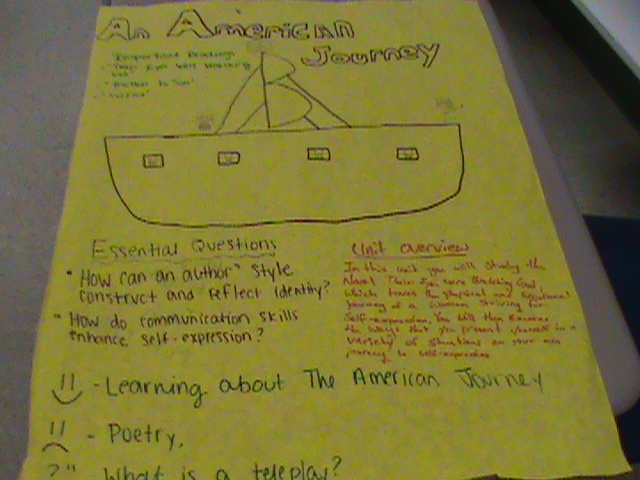 An American
Journey
Important Readings
- "Their Eyes Were Watching
God"
- "Mother to Son"
- "Sweat"
Essential Questions
• How can an author's style
construct and reflect identity?
• How do communication skills
enhance self-expression?
Unit overview
In this unit you will study the
Novel Their Eyes Were Watching God,
which traces the physical and
journey of a woman striving for
self-expression. You will then examine
the ways that you present yourself in a
variety of situations on your own
journey to self-expression
- Learning about The American Journey
- Poetry,
?" - What is a teleplay?